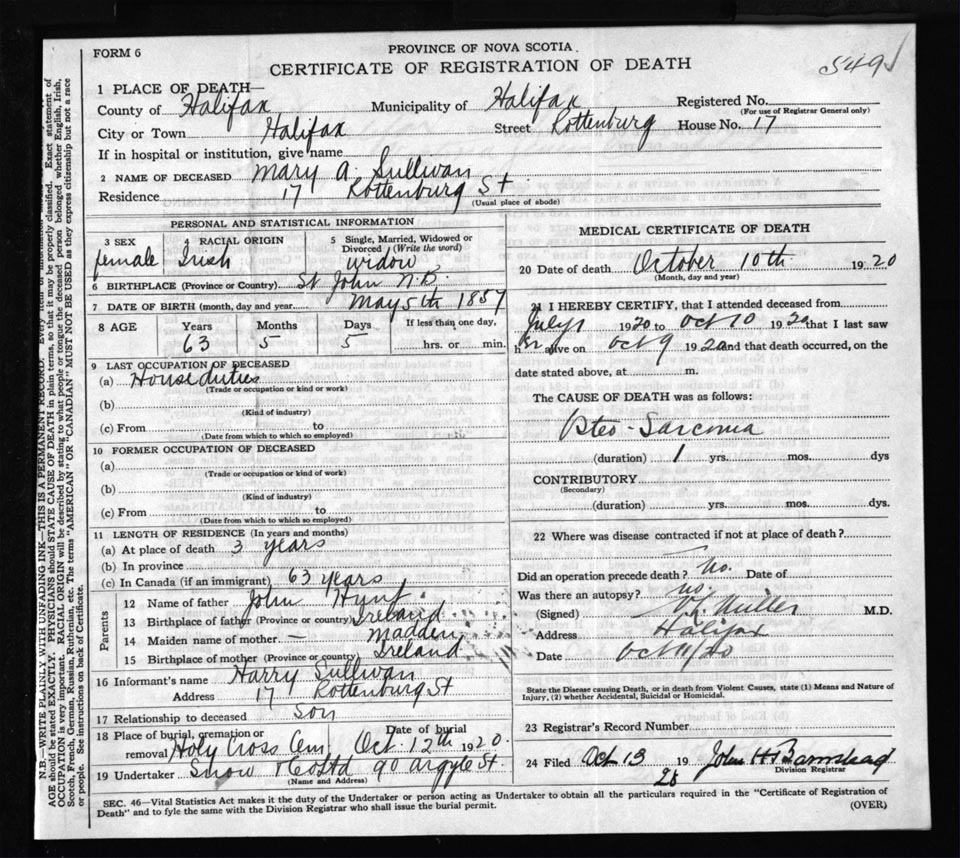 FORM 6
PROVINCE OF NOVA SCOTIA.
CERTIFICATE OF REGISTRATION OF DEATH
549
1 PLACE OF DEATH—
County of Halifax Municipality of Halifax Registered No.
(For use of Registrar General only)
City or Town Halifax Street Rottenburg House No. 17
If in hospital or institution, give name
2 NAME OF DECEASED Mary A. Sullivan
Residence 17 Rottenburg St
(Usual place of abode)
PERSONAL AND STATISTICAL INFORMATION
3 SEX
female
4 RACIAL ORIGIN
Irish
5 Single, Married, Widowed or Divorced (Write the word)
widow
6 BIRTHPLACE (Province or Country) St John N.B.
7 DATE OF BIRTH (month, day and year) May 5th 1857
8 AGE Years Months Days If less than one day,
63 5 5 hrs. or min.
9 LAST OCCUPATION OF DECEASED
(a) House duties
(Trade or occupation or kind or work)
(b)
(Kind of industry)
(c) From to
(Date from which to which so employed)
10 FORMER OCCUPATION OF DECEASED
(a)
(Trade or occupation or kind of work)
(b)
(Kind of industry)
(c) From to
(Date from which to which so employed)
11 LENGTH OF RESIDENCE (In years and months)
(a) At place of death 3 years
(b) In province
(c) In Canada (if an immigrant) 63 years
Parents
12 Name of father John Hunt
13 Birthplace of father (Province or country) Ireland
14 Maiden name of mother — Madden
15 Birthplace of mother (Province or country) Ireland
16 Informant's name Harry Sullivan
Address 17 Rottenburg St
17 Relationship to deceased son
18 Place of burial, cremation or removal Holy Cross Cem
Date of burial
Oct. 12th 1920.
19 Undertaker Snow & Co Ltd 90 Argyle St
(Name and Address)
MEDICAL CERTIFICATE OF DEATH
20 Date of death October 10th 1920
(Month, day and year)
21 I HEREBY CERTIFY, that I attended deceased from
July 1 1920 to Oct 10 1920 that I last saw
her alive on Oct 9 1920 and that death occurred, on the
date stated above, at m.
The CAUSE OF DEATH was as follows:
Osteo-Sarcoma
(duration) 1 yrs. mos. dys
CONTRIBUTORY
(Secondary)
(duration) yrs. mos. dys.
22 Where was disease contracted if not at place of death?
Did an operation precede death? No. Date of
Was there an autopsy? no.
(Signed) Miller M.D.
Address Halifax
Date Oct 11/20
State the Disease causing Death, or in death from Violent Causes, state (1) Means and Nature of
Injury, (2) whether Accidental, Suicidal or Homicidal.
23 Registrar's Record Number
24 Filed Oct 13 19 John H Barnstead
Division Registrar
SEC. 46—Vital Statistics Act makes it the duty of the Undertaker or person acting as Undertaker to obtain all the particulars required in the "Certificate of Registration of
Death" and to fyle the same with the Division Registrar who shall issue the burial permit.
(OVER)
N.B.—WRITE PLAINLY WITH UNFADING INK—THIS IS A PERMANENT RECORD. Every item of information
AGE should be stated EXACTLY. PHYSICIANS should STATE CAUSE OF DEATH in plain terms, so that it may be properly classified. Exact statement of
OCCUPATION is very important. RACIAL ORIGIN will be described by stating to what people or tongue the deceased person belonged whether English, Irish,
Scotch, French, German, Russian, Ruthenian, etc. The terms "AMERICAN" OR "CANADIAN" MUST NOT BE USED as they express citizenship but not a race
or people. See instructions on back of Certificate.